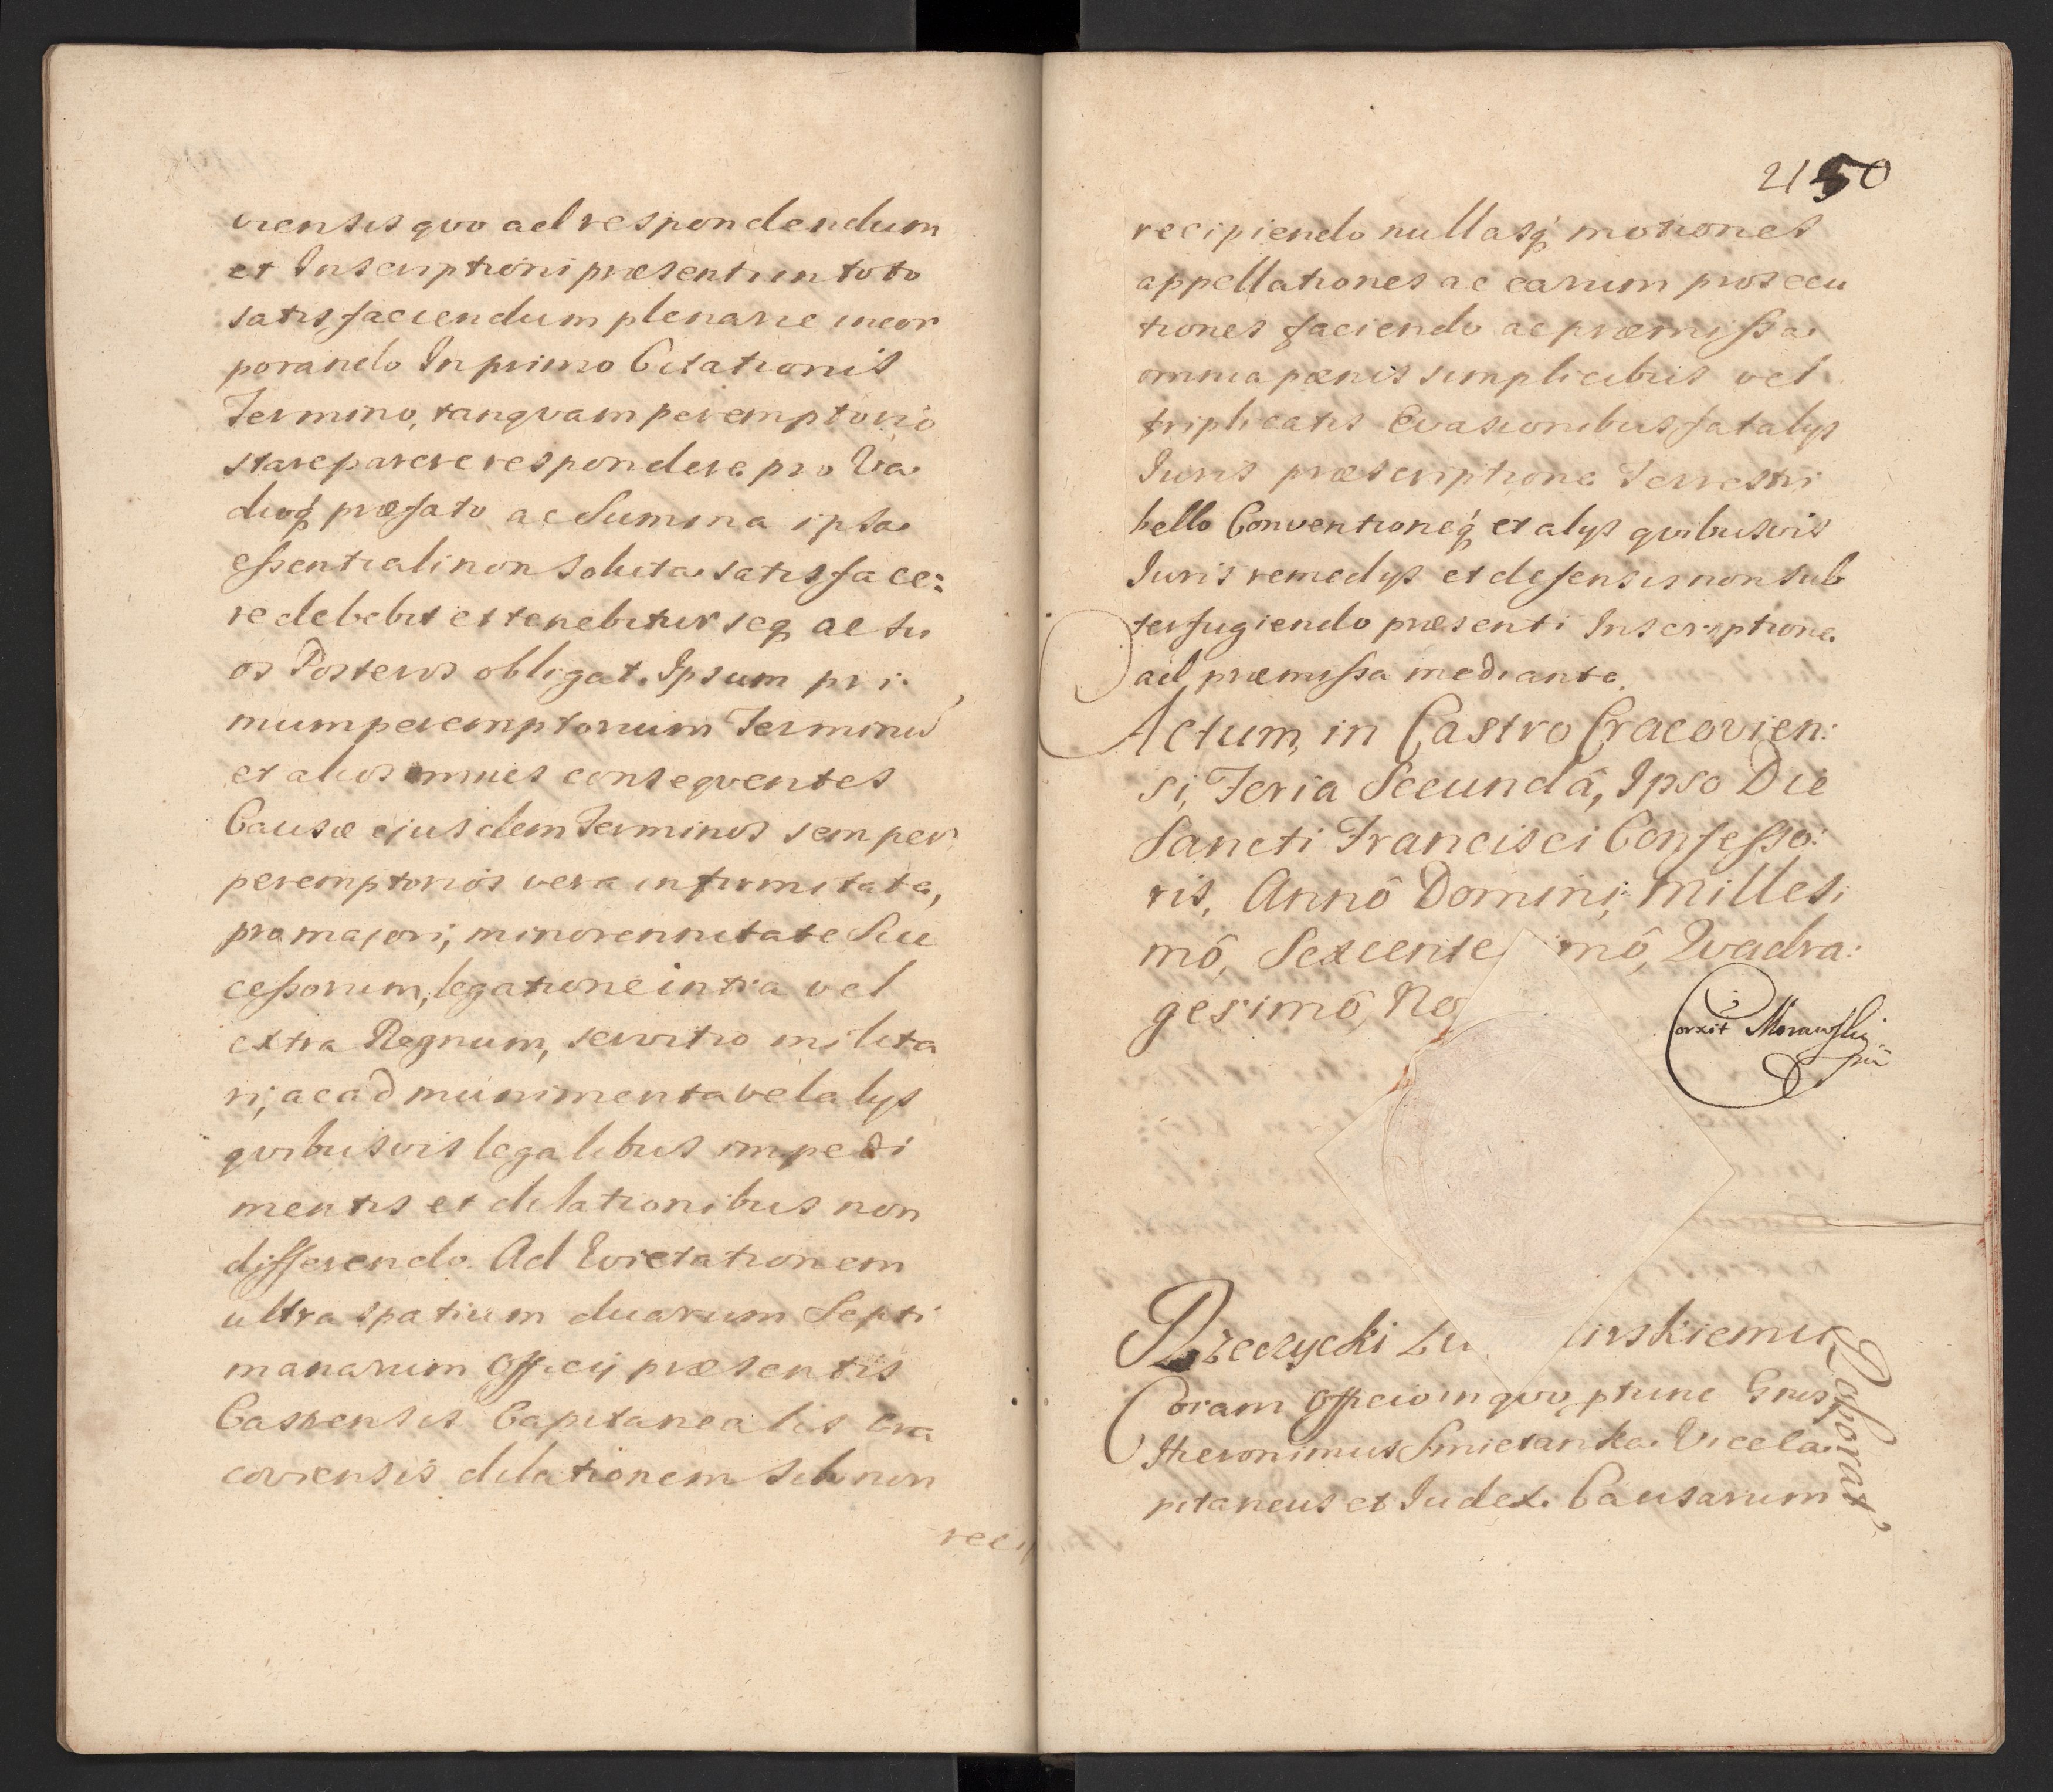 viensis quo ad respondendum
et Inscriptioni præsenti in toto
satisfaciendum plenarie incor
porando In primo Citationis
Termino, tanqvam peremptorio
stare parere respondere pro Va
dioq́ præfato ac Summa ipsa
essentiali non soluta satisface:
re debebit et tenebitur seq ac su
os Posteros obligat. Ipsum pri
mum peremptorium Terminū
et alios omnes conseqventes
Causæ ejusdem Terminos semper
peremptorios vera infirmitate,
pro majori, minorennitate Suc
cessorum, legatione intra vel
extra Regnum, servitio milita
ri, ac ad munimenta vel alys
qvibusvis legalibus impedi
mentis et dilationibus non
differendo. Ad Evictationem
ultra spatium duarum Septi
manarum Officÿ præsentis
Castrensis Capitanealis Cra
coviensis dilationem sibi non
reci
2150
recipiendo nullasq́ motiones
appellationes ac earum prosecu
tiones faciendo ac præmissa
omnia pœnis simplicibus vel
triplicatis Evasionibus fatalys
Iuris præscriptione Terrestri
bello Conventioneq́ et alys qvibusvis
Iuris remedys et defensis non sub
terfugiendo præsenti Inscriptione
ad præmissa mediante.
Actum in Castro Cracovien:
si, Feria Secundâ, Ipso Die
Sancti Francisci Confesso:
ris, Annô Domini, Millesi
mô, Sexcente mô, Qvadra:
gesimô, No
Corxit Morawski
mp
Rzeczycki Lu irskiemu
Roborat
Coram Officio in quo ptunc Gnsus
Hieronimus Smietanka Viceca
pitaneus et Iudex Causarum